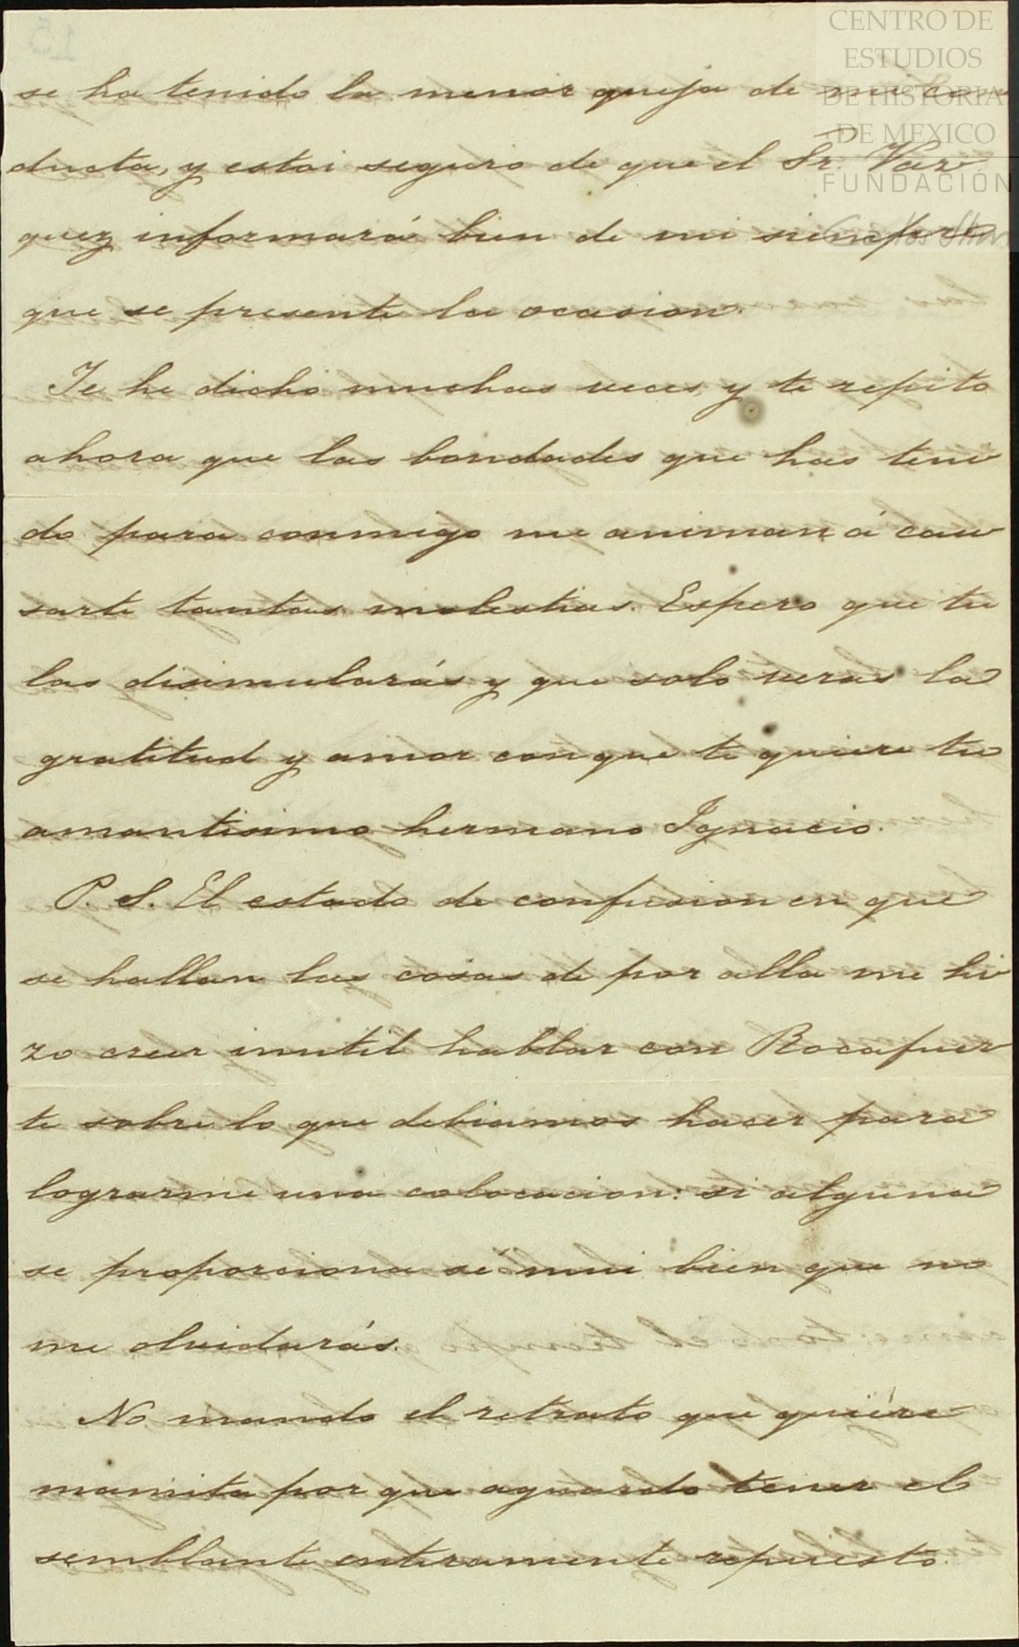 CENTRO DE
ESTUDIOS
DE HISTORIA
DE MEXICO
FUNDACIÓN
se ha tenido la menor queja de mi con
ducta, y estoi seguro de que el Sr. Vaz
quez informará bien de mi siempre
que se presente la ocasion.
Te he dicho muchas veces, y te repito
ahora que las bondades que has teni
do para conmigo me animan á cau
sarte tantas molestias. Espero que tu
las disimularás y que solo veras la
gratitud y amor con que te quiere tu
amantisimo hermano Ignacio.
P. S. El estado de confusion en que
se hallan las cosas de por alla me hi
zo creer inutil hablar con Rocafuer
te sobre lo que debiamos hacer para
lograrme una colocacion: si alguna
se proporciona sé mui bien que no
me olvidarás.
No mando el retrato que quiere
mamita por que aguardo tener el
semblante enteramente repuesto.